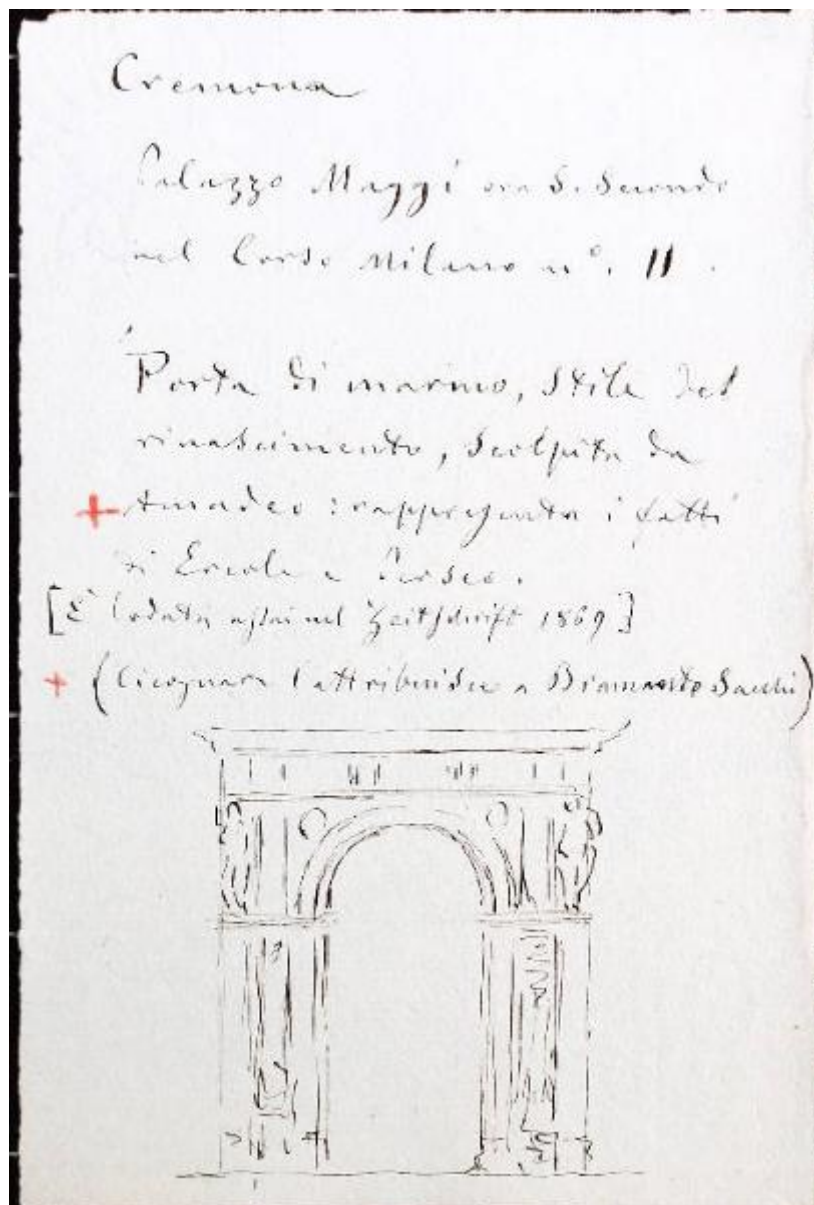 Cremona
Palazzo Maggi ora S. Secondo
nel Corso Milano n°. 11.
Porta di marmo, stile del
rinascimento, scolpita da
+ Amadeo : rappresenta i fatti
di Ercole e Perseo.
[È lodata assai nel Zeitschrift 1869]
+ (Cicognara l'attribuisce a Bramante Sacchi)